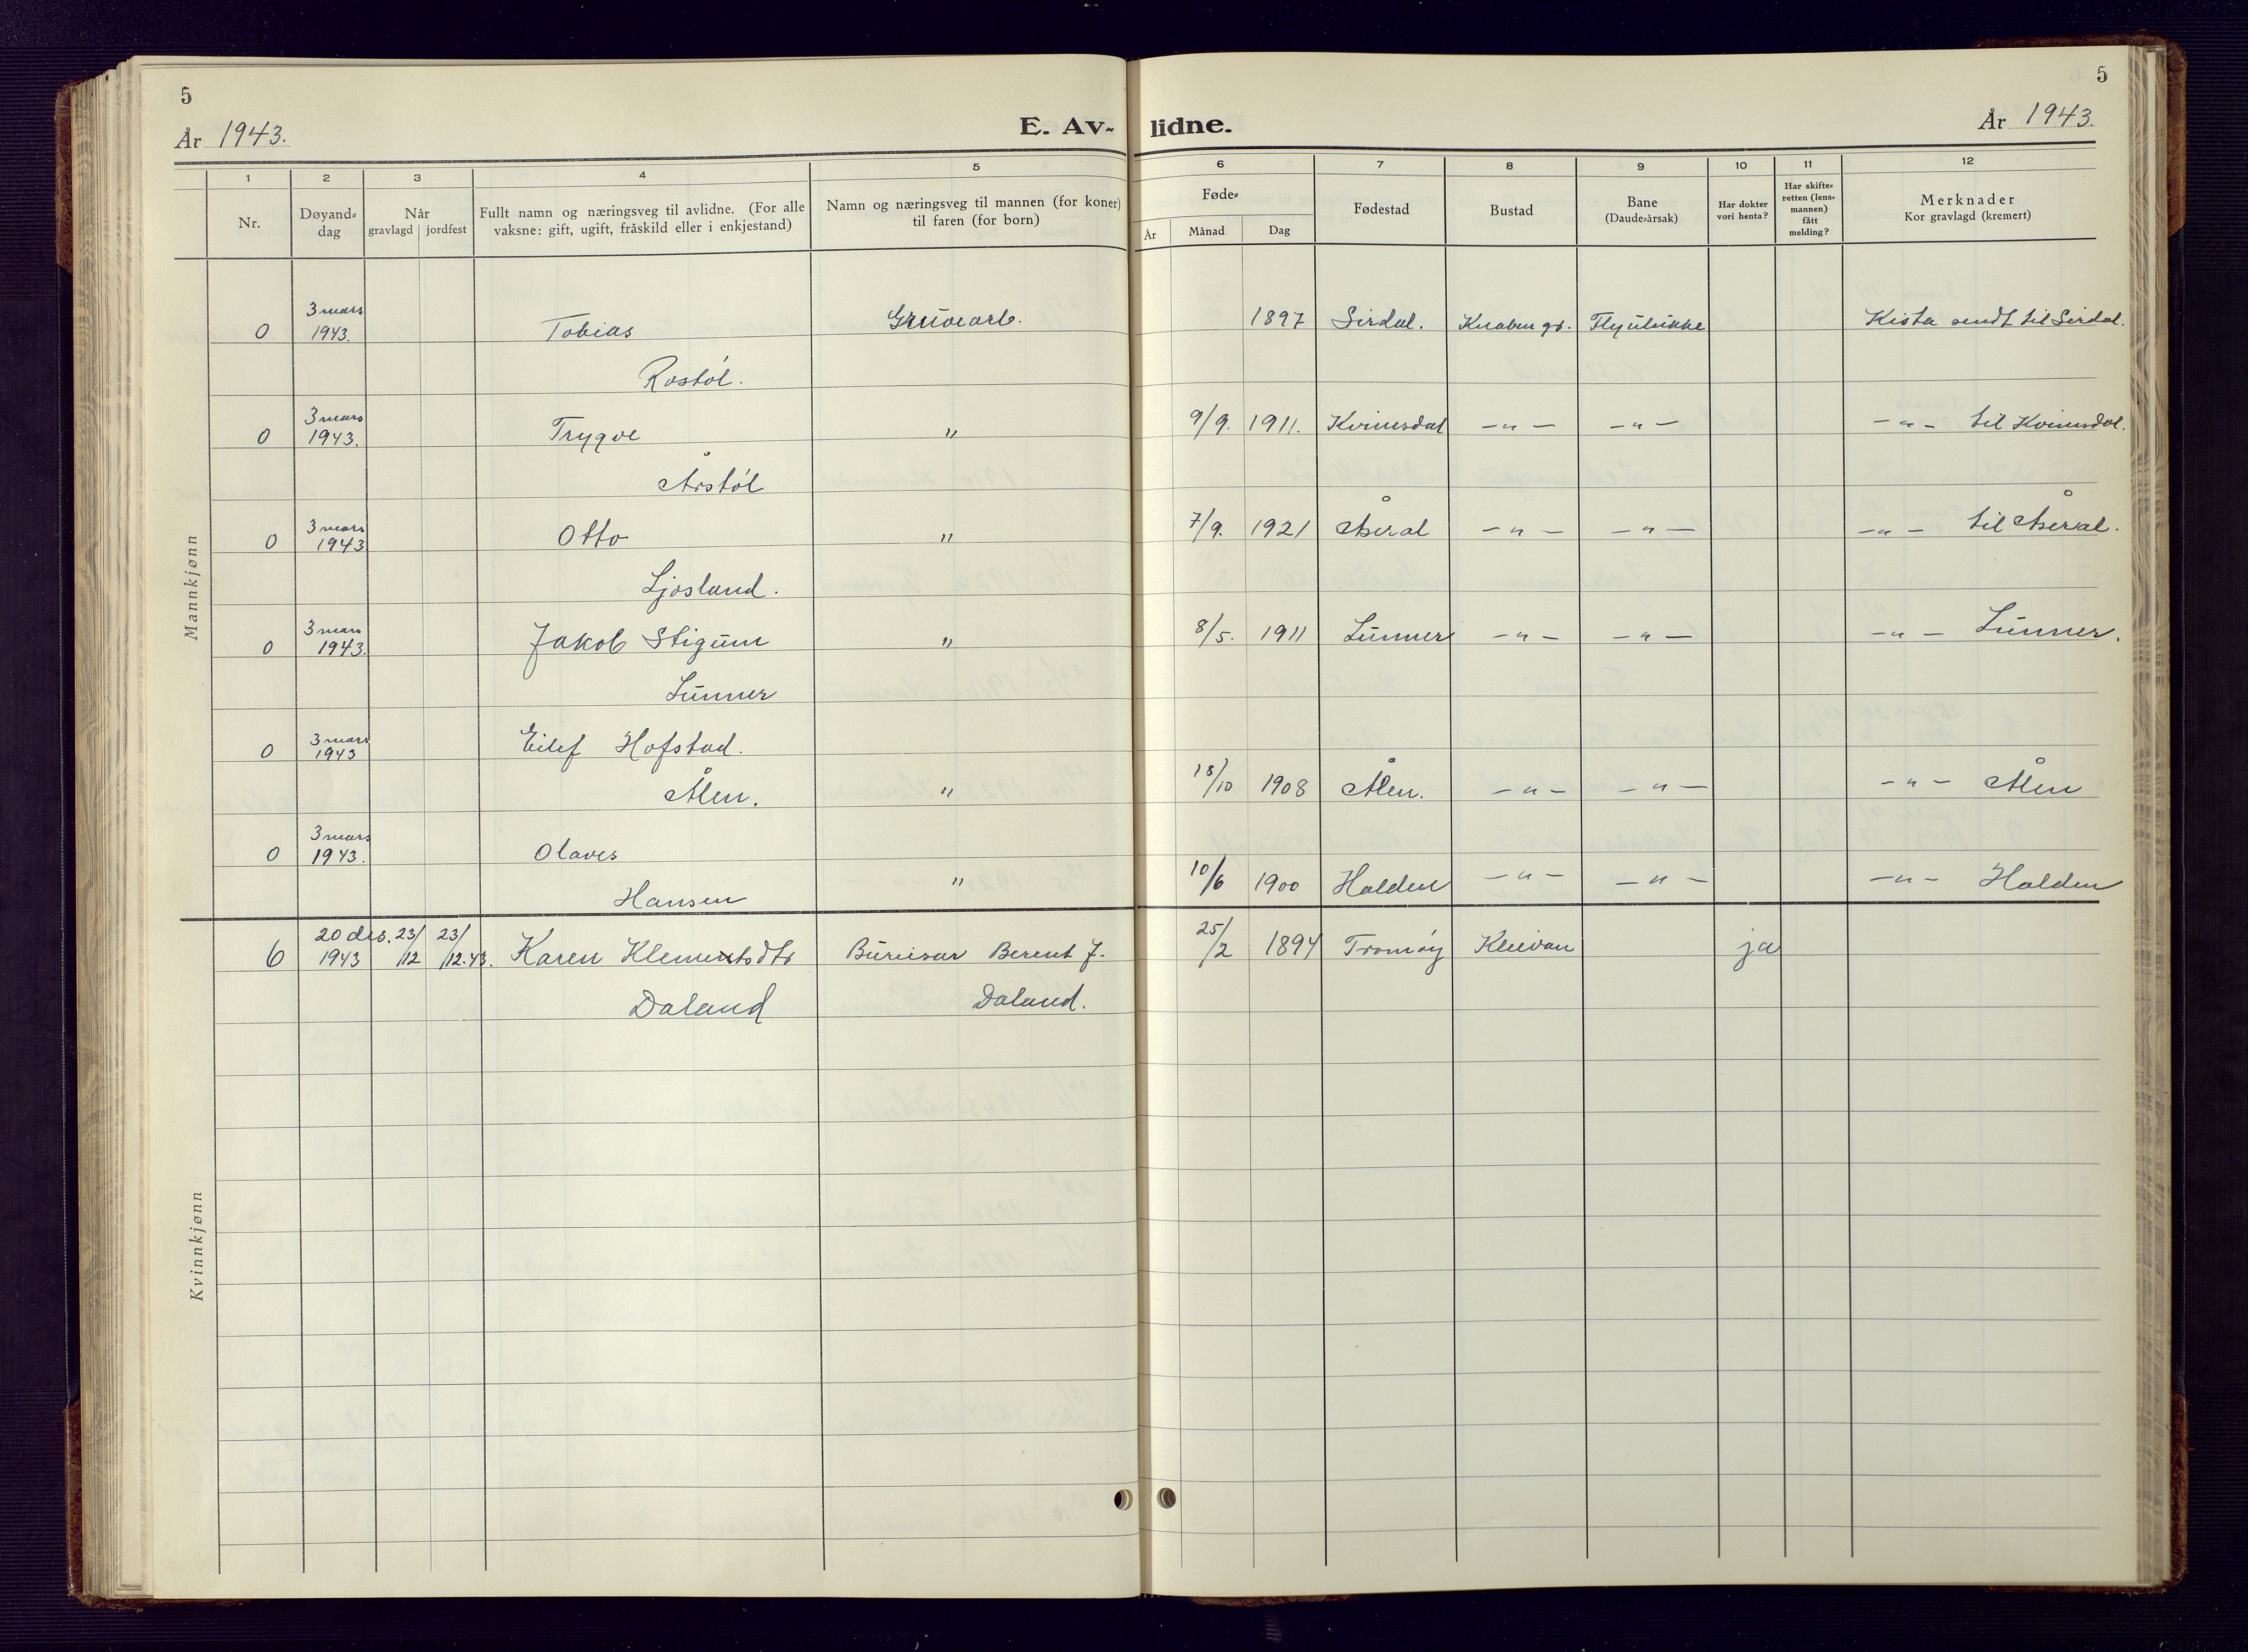 5
År 1943.
E. Av-
lidne.
5
År 1943.
1 2 3 4 5 6 7 8 9 10 11 12
Nr.
Døyand-
dag
Når
gravlagd jordfest
Fullt namn og næringsveg til avlidne. (For alle
vaksne: gift, ugift, fråskild eller i enkjestand)
Namn og næringsveg til mannen (for koner)
til faren (for born)
Føde-
År Månad Dag
Fødestad
Bustad
Bane
(Daude-årsak)
Har dokter
vori henta?
Har skifte-
retten (lens-
mannen)
fått
melding?
Merknader
Kor gravlagd (kremert)
Mannkjønn
3 mars
0 1943. Tobias Gruvearb. 1897 Sirdal. Knaben gr. Flyulukke Kista sendt til Sirdal.
Rostøl.
3 mars
0 1943. Trygve " 9/9. 1911. Kvinesdal -"- -"- -"- til Kvinesdal.
Årstøl
3 mars
0 1943 Otto " 7/9. 1921 Åseral -"- -"- -"- til Åseral.
Ljosland.
3 mars
0 1943. Jakob Stigum " 8/5. 1911 Lunner -"- -"- -"- Lunner.
Lunner
3 mars
0 1943 Eilef Hofstad.
Ålen. " 18/10 1908 Ålen. -"- -"- -"- Ålen
3 mars
0 1943. Olaves
Hansen " 10/6 1900 Halden -"- -"- -"- Halden
Kvinnkjønn
20 des. 23/ 23/
6 1943 /12 /12.43. Karen Klementsdtr Bureisar Berent J. 25/2 1894 Tromøy Kleivan ja
Daland Daland.